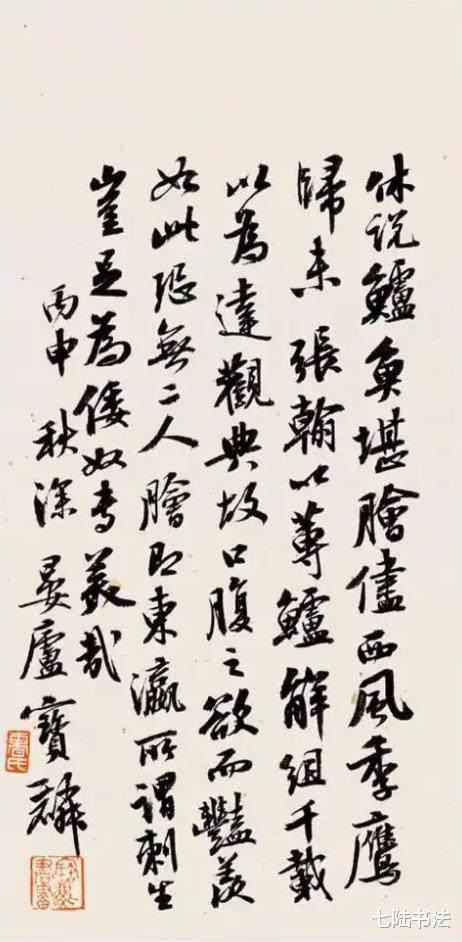 休说鱸魚堪膾儘西風季鷹
歸未張翰以蓴鱸解組千載
以為達觀典故口腹之欲而豔羨
如此恐無二人膾即東瀛所謂刺生
豈足為倭奴专美哉
丙申秋深晏廬寶麟
七陆书法